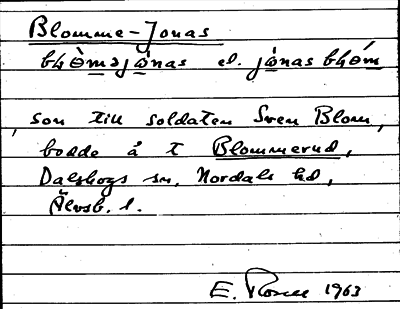 Blomme-Jonas
bɫòməjònas el. jònas bɫóm
son till soldaten Sven Blom,
bodde å t Blommerud,
Dalskogs sn, Nordals hd,
Älvsb. l.
E. 1963